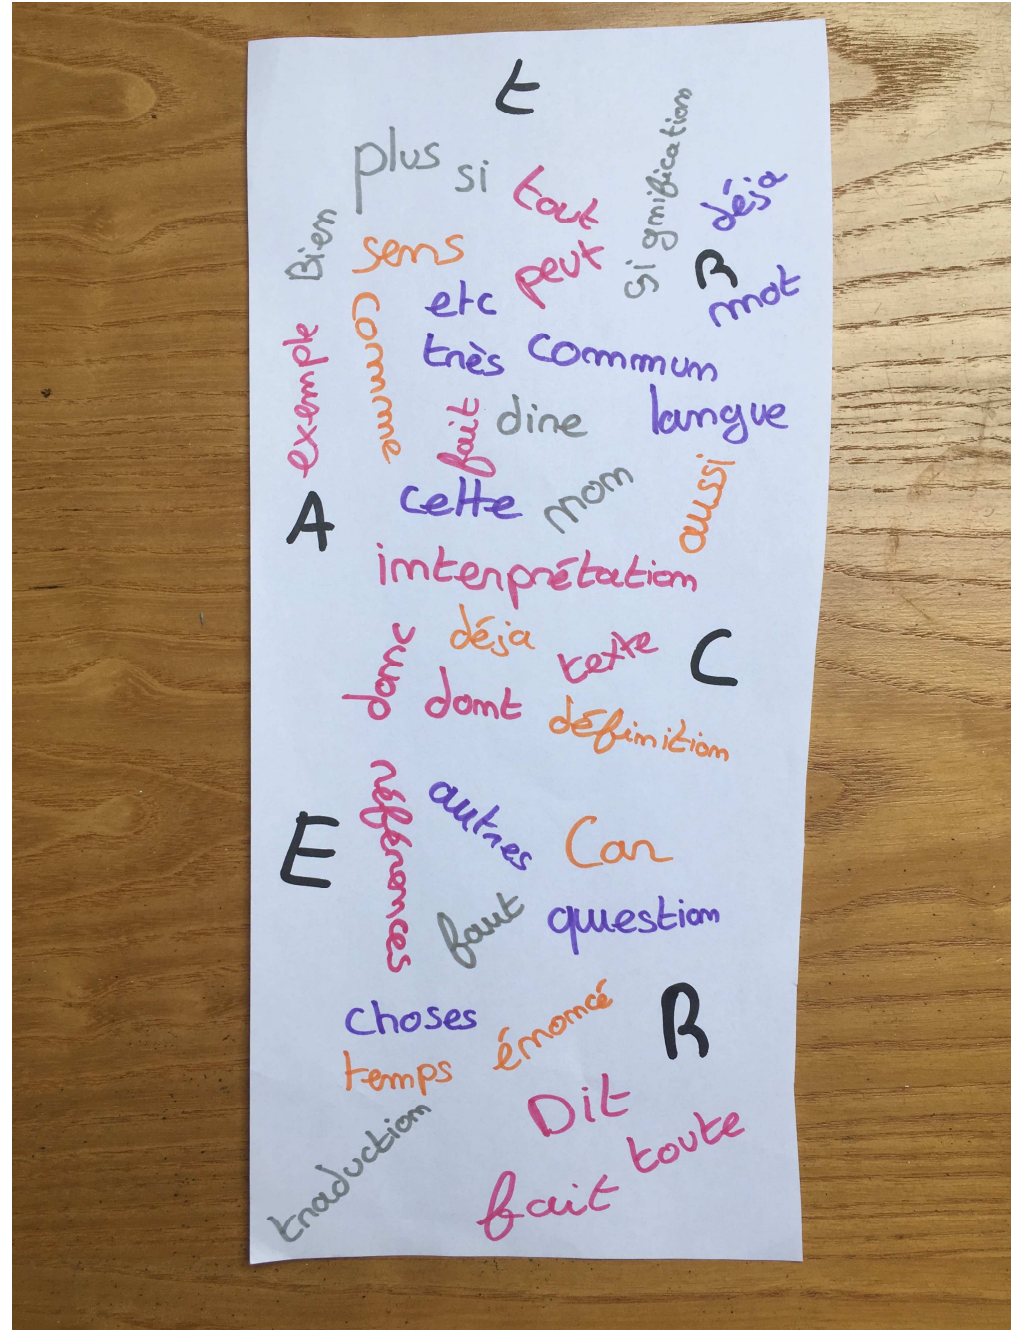 t
plus si
tout
signification
déja
Bien
sens
peut
R
mot
etc
comme
exemple
très
commun
fait
dire
langue
cette
nom
aussi
A
interprétation
donc
déja
texte
C
dont
définition
références
autres
Car
E
faut
question
choses
énoncé
R
temps
Dit
traduction
toute
fait